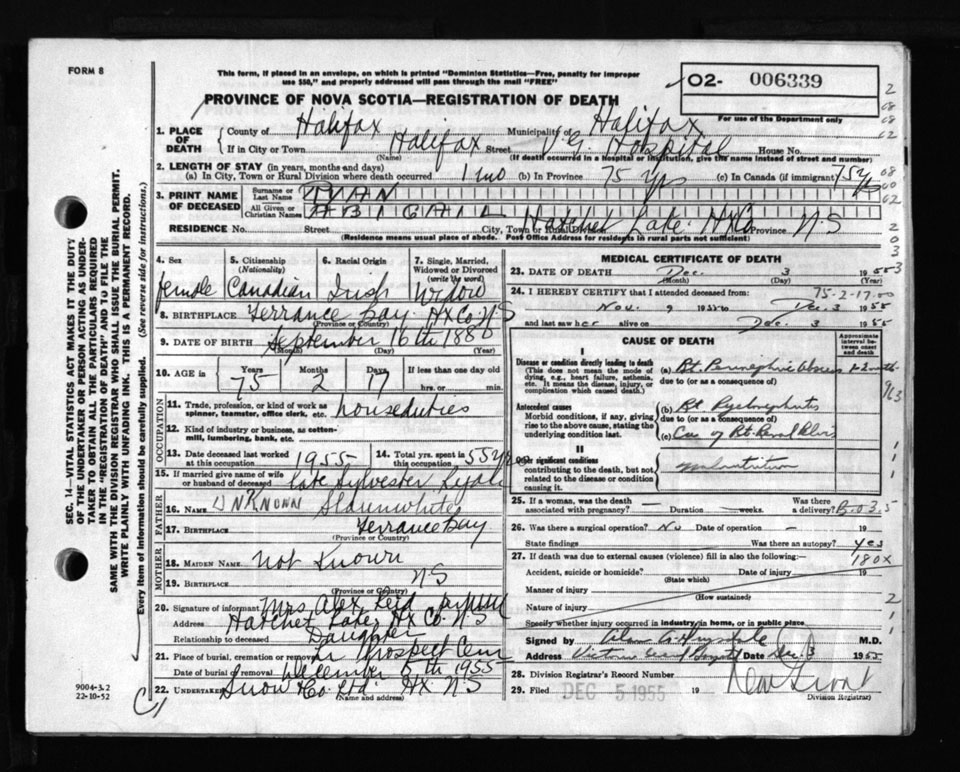 FORM 8
This form, if placed in an envelope, on which is printed "Dominion Statistics—Free, penalty for improper
use $50," and properly addressed will pass through the mail "FREE"
O2- 006339
For use of the Department only
PROVINCE OF NOVA SCOTIA—REGISTRATION OF DEATH
1. PLACE OF DEATH County of Halifax Municipality of Halifax
If in City or Town Halifax Street V.G. Hospital House No.
(Name) (If death occurred in a hospital or institution, give the name instead of street and number)
2. LENGTH OF STAY (in years, months and days)
(a) In City, Town or Rural Division where death occurred 1 mo (b) In Province 75 yrs (c) In Canada (if immigrant) 75 yrs
3. PRINT NAME OF DECEASED Surname or Last Name RYAN
All Given or Christian Names ABIGAIL
RESIDENCE No. Street City, Town or Rural Division Hatchet Lake Hx Co Province N.S
(Residence means usual place of abode. Post Office Address for residents in rural parts not sufficient)
4. Sex 5. Citizenship (Nationality) 6. Racial Origin 7. Single, Married, Widowed or Divorced (write the word)
female Canadian Irish Widow
8. BIRTHPLACE Terrance Bay Hx Co N.S
(Province or Country)
9. DATE OF BIRTH September 16th 1880
(Month) (Day) (Year)
10. AGE in Years Months Days If less than one day old
75 2 17 hrs. or min.
OCCUPATION
11. Trade, profession, or kind of work as spinner, teamster, office clerk, etc. houseduties
12. Kind of industry or business, as cotton-mill, lumbering, bank, etc.
13. Date deceased last worked at this occupation 1955 14. Total yrs. spent in this occupation 55 yrs
15. If married give name of wife or husband of deceased late Sylvester
FATHER
16. Name UNKNOWN Slaunwhite
17. Birthplace Terrance Bay
(Province or Country)
MOTHER
18. Maiden Name Not Known
19. Birthplace N S
(Province or Country)
20. Signature of informant Mrs Alex Reid
Address Hatchet Lake, Hx Co. N.S
Relationship to deceased Daughter
21. Place of burial, cremation or removal Prospect Cem
Date of burial or removal December 5th 1955
22. Undertaker Snow & Co. Ltd. Hx N.S
(Name and address)
9004-3.2
22-10-52
MEDICAL CERTIFICATE OF DEATH
23. DATE OF DEATH Dec. 3 1955
(Month) (Day)
24. I HEREBY CERTIFY that I attended deceased from: 75-2-17
Nov. 9 1955 to Dec. 3 1955
and last saw her alive on Dec. 3 1955
CAUSE OF DEATH
Approximate interval between onset and death
I
Disease or condition directly leading to death
(This does not mean the mode of dying, e.g., heart failure, asthenia, etc. It means the disease, injury, or complication which caused death.)
(a) Rt. Perinephric Abscess 1-2 month
due to (or as a consequence of)
Antecedent causes
Morbid conditions, if any, giving rise to the above cause, stating the underlying condition last.
(b) Rt. Pyelonephritis
due to (or as a consequence of)
(c) Ca of Rt. Renal Pelvis
II
Other significant conditions
contributing to the death, but not related to the disease or condition causing it.
malnutrition
25. If a woman, was the death associated with pregnancy? — Duration — weeks. Was there a delivery?
26. Was there a surgical operation? No Date of operation — 19
State findings Was there an autopsy? yes
27. If death was due to external causes (violence) fill in also the following:—
180X
Accident, suicide or homicide? Date of injury 19
(State which)
Manner of injury
(How sustained)
Nature of injury
Specify whether injury occurred in industry, in home, or in public place
Signed by M.D.
Address Victoria Gen. Hospital Date Dec. 3 1955
28. Division Registrar's Record Number
29. Filed DEC 5 1955 19
Division Registrar)
SEC. 14—VITAL STATISTICS ACT MAKES IT THE DUTY
OF THE UNDERTAKER OR PERSON ACTING AS UNDER-
TAKER TO OBTAIN ALL THE PARTICULARS REQUIRED
IN THE "REGISTRATION OF DEATH" AND TO FILE THE
SAME WITH THE DIVISION REGISTRAR WHO SHALL ISSUE THE BURIAL PERMIT.
WRITE PLAINLY WITH UNFADING INK. THIS IS A PERMANENT RECORD.
Every item of information should be carefully supplied. (See reverse side for instructions.)